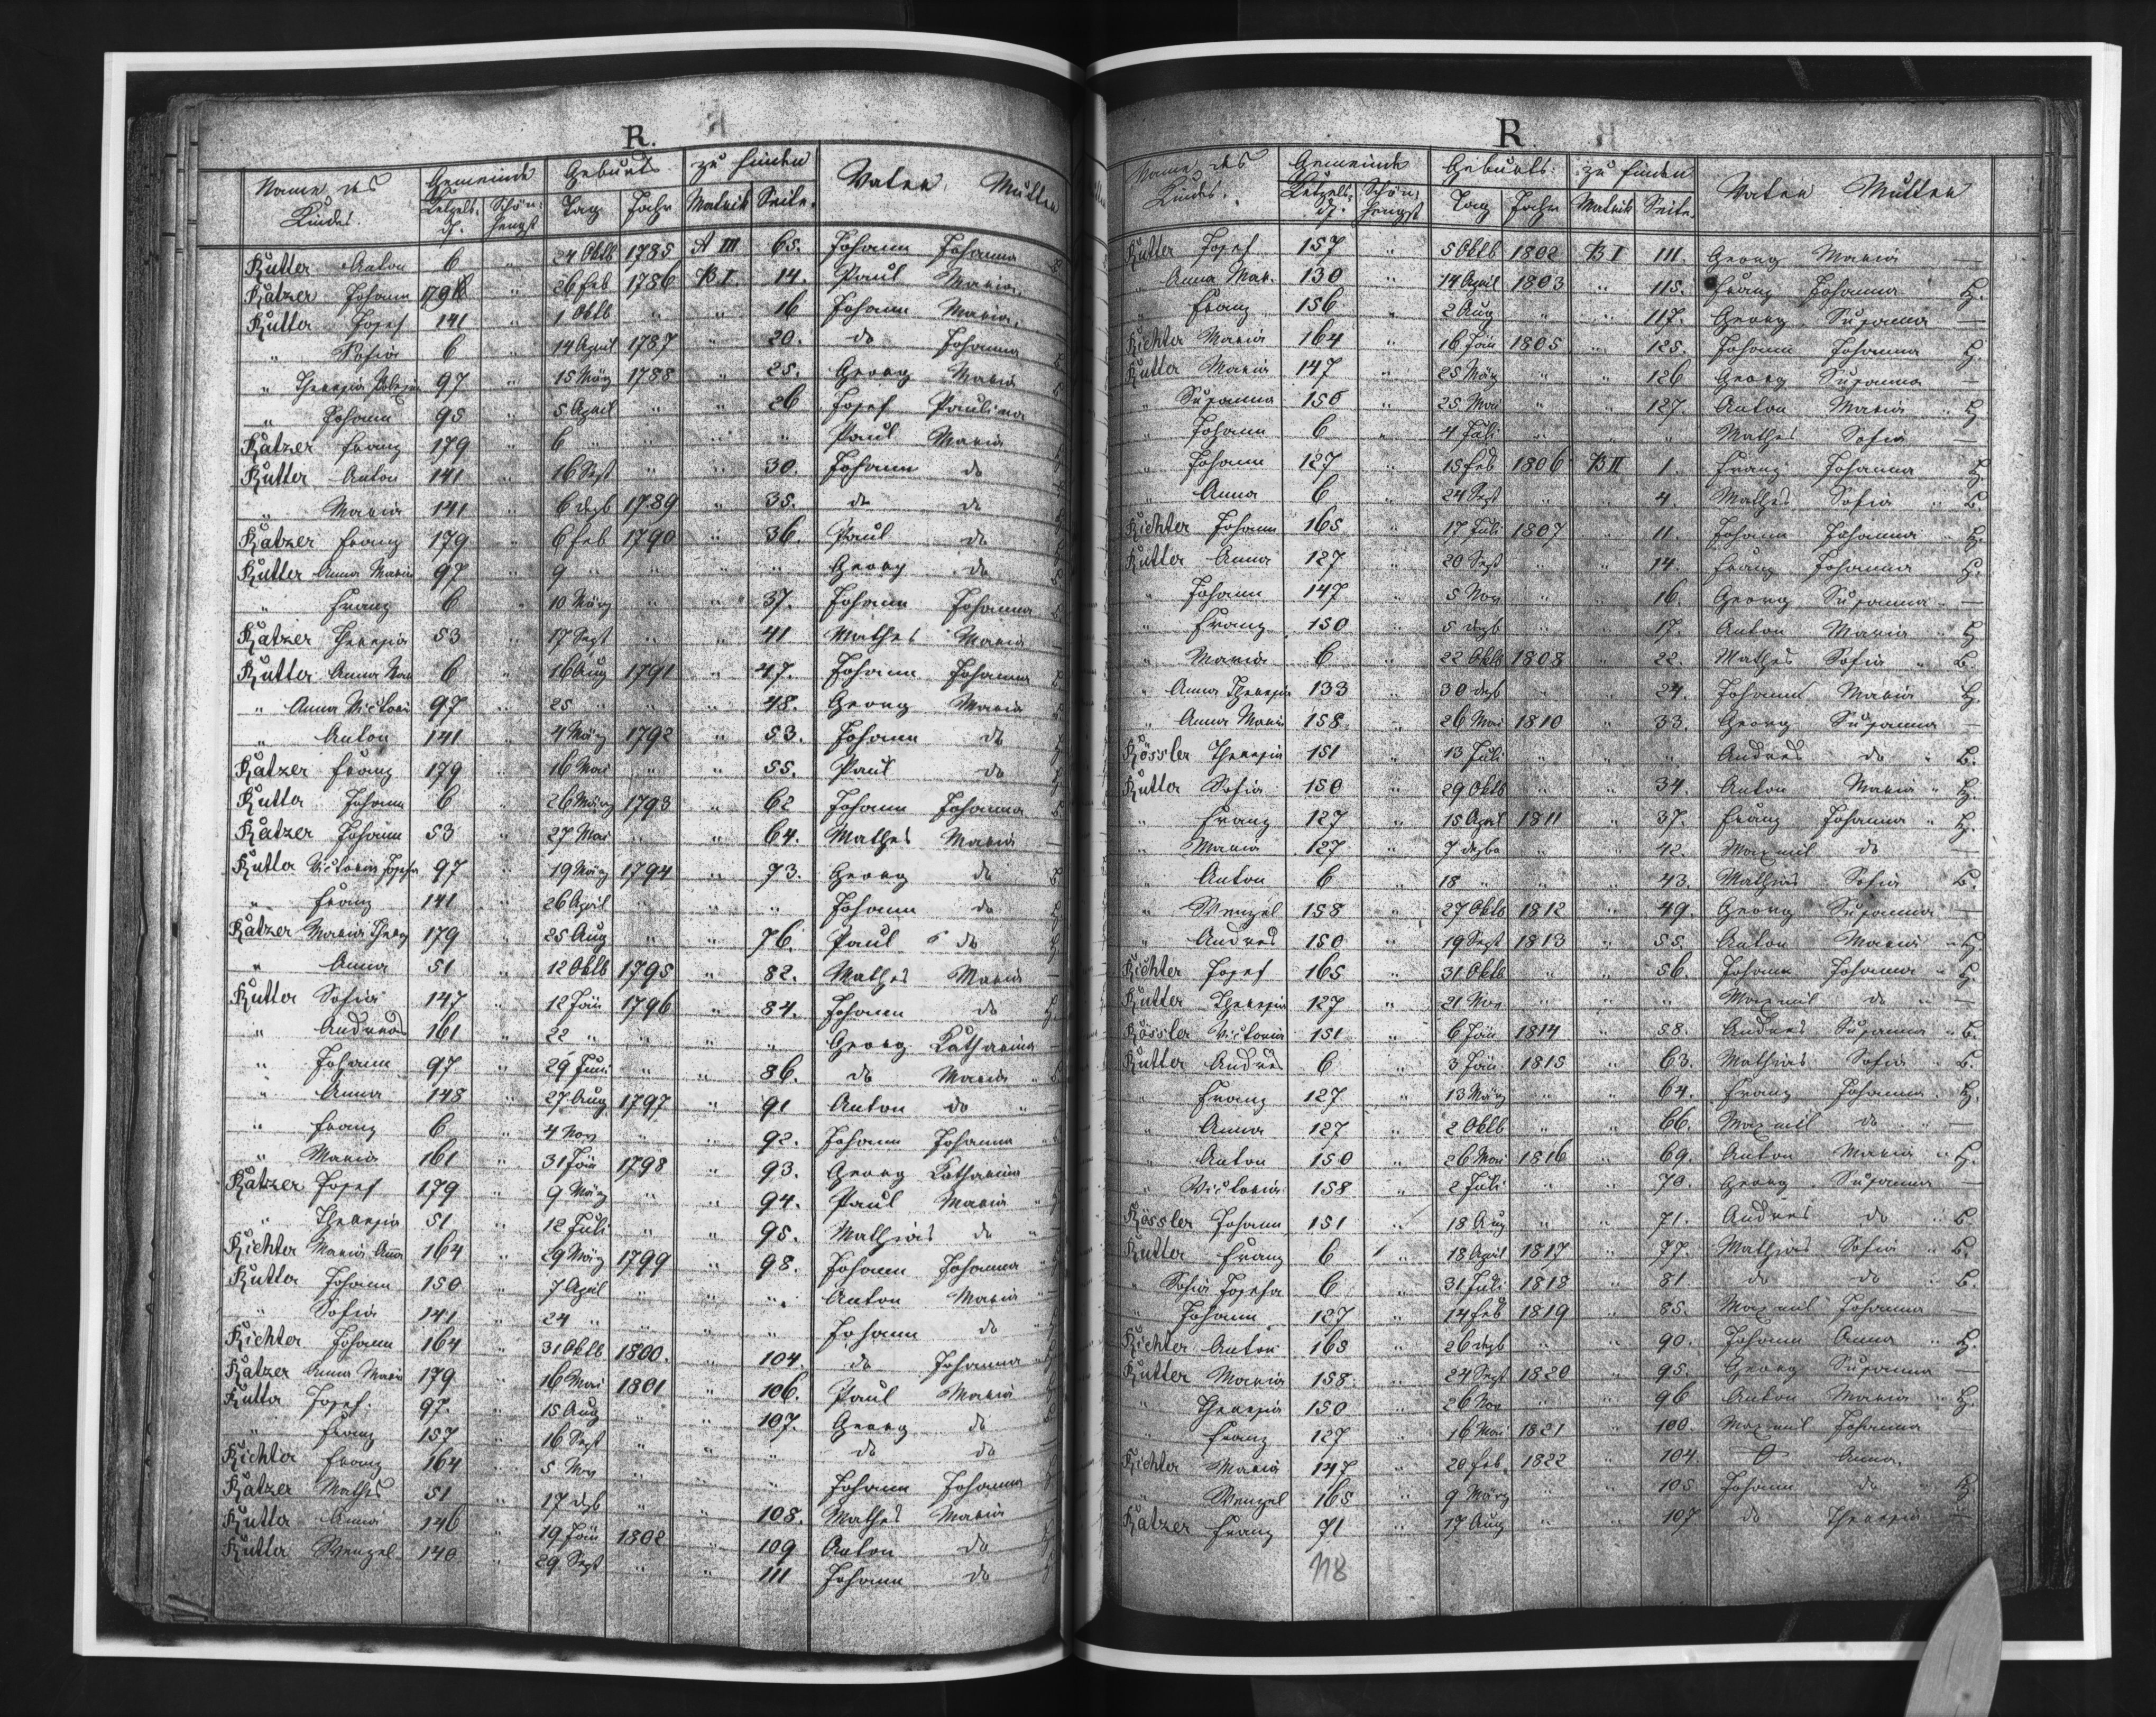 R.
Name des Kindes. Gemeinde Geburts zu finden Vater Mutter
Ketzels-df. Schön-hengst Tag Jahr Matrik Seite.
Rutter Anton 6 " 24 Oktb 1785 A III 65. Johann Johanna
Ratzer Johann 179 " 26 Feb 1786 B I. 14. Paul Maria
Rutter Josef 141 " 1 Oktb " " 16 Johann Maria
" Sofia 6 " 14 April 1787 " 20. do Johanna
" Theresia 97 " 15 März 1788 " 25. Georg Maria
" Johann 95 " 5 April " " 26 Josef Paulina
Ratzer Franz 179 " 6 " " " " Paul Maria
Rutter Anton 141 " 16 Sept " " 30. Johann do
" Maria 141 " 6 dezb 1789 " 35. do do
Ratzer Franz 179 " 6 Feb 1790 " 36. Paul do
Rutter Anna Maria 97 " 9 " " " " Georg do
" Franz 6 " 10 März " " 37. Johann Johanna
Ratzer Theresia 53 " 17 Sept " " 41 Mathes Maria
Rutter Anna Mar 6 " 16 Aug 1791 " 47. Johann Johanna
" Anna Victori 97 " 25 " " " 48. Georg Maria
" Anton 141 " 4 März 1792 " 53. Johann do
Ratzer Franz 179 " 16 Mai " " 55. Paul do
Rutter Johann 6 " 26 März 1793 " 62 Johann Johanna
Ratzer Johann 53 " 27 Mai " " 64. Mathes Maria
Rutter Victoria Josefa 97 " 19 März 1794 " 73. Georg do
" Franz 141 " 26 April " " " Johann do
Ratzer Maria Theres 179 " 25 Aug " " 76. Paul do
" Anna 51 " 12 Oktb 1795 " 82. Mathes Maria
Rutter Sofia 147 " 12 Jän 1796 " 84. Johann do
" Andreas 161 " 22 " " " " Georg Katharina
" Johann 97 " 29 Juni " " 86. do Maria
" Anna 148 " 27 Aug 1797 " 91 Anton do
" Franz 6 " 4 Nov " " 92. Johann Johanna
" Maria 161 " 31 Jän 1798 " 93. Georg Katharina
Ratzer Josef 179 " 9 März " " 94. Paul Maria
" Theresia 51 " 12 Juli " " 95. Mathias do
Richter Maria Anna 164 " 29 März 1799 " 98. Johann Johanna
Rutter Johann 150 " 7 April " " " Anton Maria
" Sofia 141 " 24 " " " " Johann do
Richter Johann 164 " 31 Oktb 1800. " 104. do Johanna
Ratzer Anna Maria 179 " 16 Mai 1801 " 106. Paul Maria
Rutter Josef. 97. " 15 Aug " " 107. Georg do
" Franz 157 " 16 Sept " " " do do
Richter Franz 164 " 5 Nov " " " Johann Johanna
Ratzer Mathes 51 " 17 dzb " " 108. Mathes Maria
Rutter Anna 146 " 19 Jän 1802 " 109 Anton do
Rutter Wenzel 140 " 29 Sept " " 111 Johann do
R
Name des Kindes. Gemeinde Geburts. zu finden Vater Mutter
Ketzels-df. Schön-hengst Tag Jahr Matrik Seite.
Rutter Josef 157 " 5 Oktb 1802 B I 111. Georg Maria —
" Anna Mar. 130 " 14 April 1803 " 115. Franz Johanna H.
" Franz 156 " 2 Aug " " 117. Georg Susanna —
Richter Maria 164 " 16 Jän 1805 " 125. Johann Johanna H.
Rutter Maria 147 " 25 März " " 126 Georg Susanna —
" Susanna 150 " 25 Mai " " 127. Anton Maria " H.
" Johann 6 " 4 Juli " " " Mathes Sofia —
" Johann 127 " 15 Feb 1806 B II 1. Franz Johanna H.
" Anna 6 " 24 Sept " " 4. Mathes Sofia " B.
Richter Johann 165 " 17 Juli 1807 " 11. Johann Johanna " H.
Rutter Anna 127 " 20 Sept " " 14. Franz Johanna H.
" Johann 147 " 5 Nov " " 16. Georg Susanna —
" Franz 150 " 5 dezb " " 17. Anton Maria " H.
" Maria 6 " 22 Oktb 1808 " 22. Mathes Sofia " B.
" Anna Theresia 133 " 30 dezb " " 24. Johann Maria H.
" Anna Maria 158 " 26 Mai 1810 " 33. Georg Susanna —
Rössler Theresia 151 " 13 Juli " " " Andres do " B.
Rutter Sofia 150 " 29 Oktb " " 34. Anton Maria " H.
" Franz 127 " 15 April 1811 " 37. Franz Johanna " H.
" Maria 127 " 7 dezb " " 42. Maxmil do —
" Anton 6 " 18 " " " 43. Mathias Sofia B.
" Wenzel 158 " 27 Oktb 1812 " 49. Georg Susanna —
" Andres 150 " 19 Sept 1813 " 55. Anton Maria " H.
Richter Josef 165 " 31 Oktb " " 56. Johann Johanna " H.
Rutter Theresia 127 " 21 Nov " " " Maxmil do " —
Rössler Victoria 151 " 6 Jän 1814 " 58. Andres Susanna " B.
Rutter Andres 6 " 3 Jän 1815 " 63. Mathias Sofia " B.
" Franz 127 " 13 März " " 64. Franz Johanna " H.
" Anna 127 " 2 Oktb " " 66. Maxmil do " —
" Anton 150 " 26 Mai 1816 " 69. Anton Maria " H.
" Victoria 158 " 2 Juli " " 70. Georg Susanna —
Rössler Johann 151 " 18 Aug " " 71. Andres do " B.
Rutter Franz 6 " 18 April 1817 " 77. Mathias Sofia " B.
" Sofia Josefa 6 " 31 Juli 1818 " 81 do do " B.
" Johann 127 " 14 Feb 1819 " 85. Maxmil Johanna —
Richter Anton 165 " 26 dezb " " 90. Johann Anna " H.
Rutter Maria 158. " 24 Sept 1820 " 95. Georg Susanna —
" Theresia 150 " 26 Nov " " 96 Anton Maria " H.
" Franz 127 " 16 Mai 1821 " 100. Maxmil Johanna —
Richter Maria 147 " 20 Feb. 1822 " 104. Anna.
" Wenzel 165 " 9 März " " 105 Johann do " H.
Ratzer Franz 71 " 17 Aug " " 107 do Theresia —
118